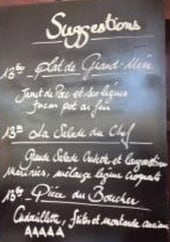 Suggestions
13 plat de Grand-Mère
Jarret de Porc et ses légumes
façon pot au feu
13 La Salade du Chef
Grande Salade
marinées, mélange légume croquants
15 Pièce du Boucher
frites et moutarde